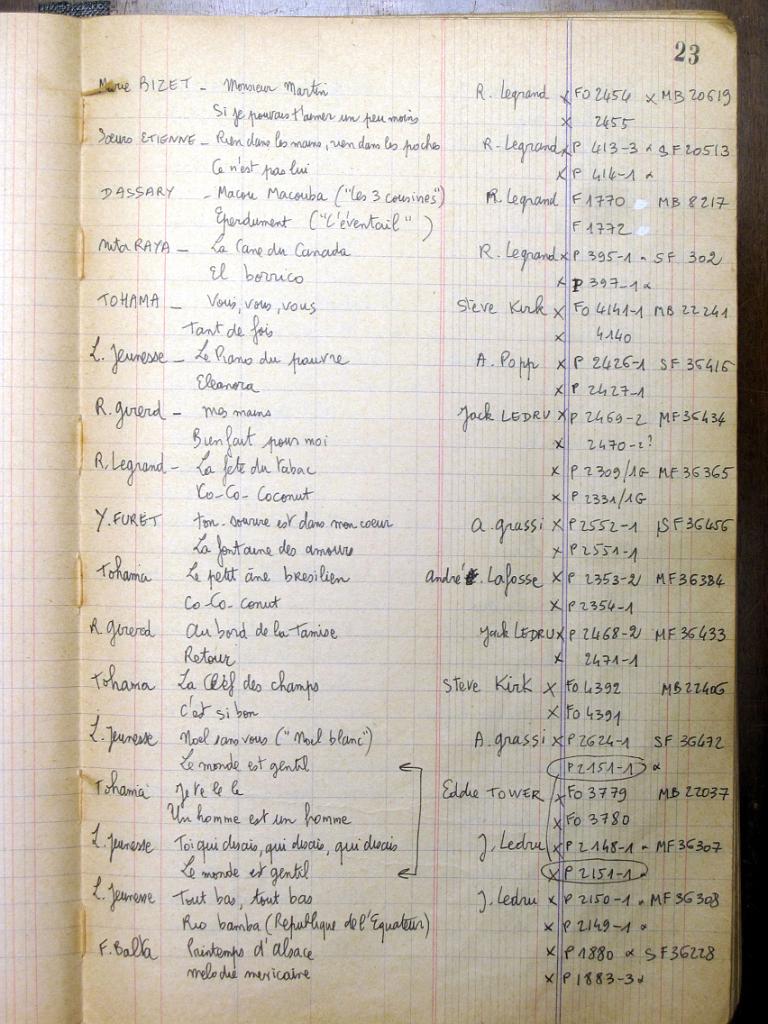 23
Marie BIZET - Monsieur Martin R. Legrand x FO 2454 x MB 20619
Si je pouvais t'aimer un peu moins x 2455
Soeurs ETIENNE - Rien dans les mains, rien dans les poches R. Legrand x P 413-3 x SF 20513
Ce n'est pas lui x P 414-1 x
DASSARY - Macou Macouba ("Les 3 cousines") R. Legrand F 1770 MB 8217
Eperdument ("L'éventail") F 1772
Nita RAYA - La Cane du Canada R. Legrand x P 395-1 - SF 302
El borrico x P 397-1 x
TOHAMA - Vous, vous, vous Steve Kirk x FO 4141-1 MB 22241
Tant de fois x 4140
L. Jeunesse - Le Piano du pauvre A. Popp x P 2426-1 SF 36416
Eleanora x P 2427-1
R. Girerd - Mes mains Jack LEDRU x P 2469-2 MF 36434
Bien fait pour moi x 2470-2?
R. Legrand - La fête du tabac x P 2309/1G MF 36365
Co-Co-Coconut x P 2331/1G
Y. FURET ton sourire est dans mon coeur A. grassi x P 2552-1 SF 36456
La fontaine des amours x P 2551-1
Tohama Le petit âne bresilien André Lafosse x P 2353-2 MF 36384
Co-Co-conut x P 2354-1
R. Girerd Au bord de la Tamise Jack LEDRU x P 2468-2 MF 36433
Retour x 2471-1
Tohama La Clef des champs Steve Kirk x FO 4392 MB 22406
C'est si bon x FO 4391
L. Jeunesse Noel sans vous ("Noel blanc") A. grassi x P 2624-1 SF 36472
Le monde est gentil P 2151-1 x
Tohama Je te le le Eddie TOWER x FO 3779 MB 22037
Un homme est un homme x FO 3780
L. Jeunesse Toi qui disais, qui disais, qui disais J. Ledru x P 2148-1 - MF 36307
Le monde est gentil x P 2151-1
L. Jeunesse Tout bas, tout bas J. Ledru x P 2150-1 . MF 36308
Rio bamba (Republique de l'Equateur) x P 2149-1 x
F. Balta Printemps d'alsace x P 1880 x SF 36228
melodie mexicaine x P 1883-3 x